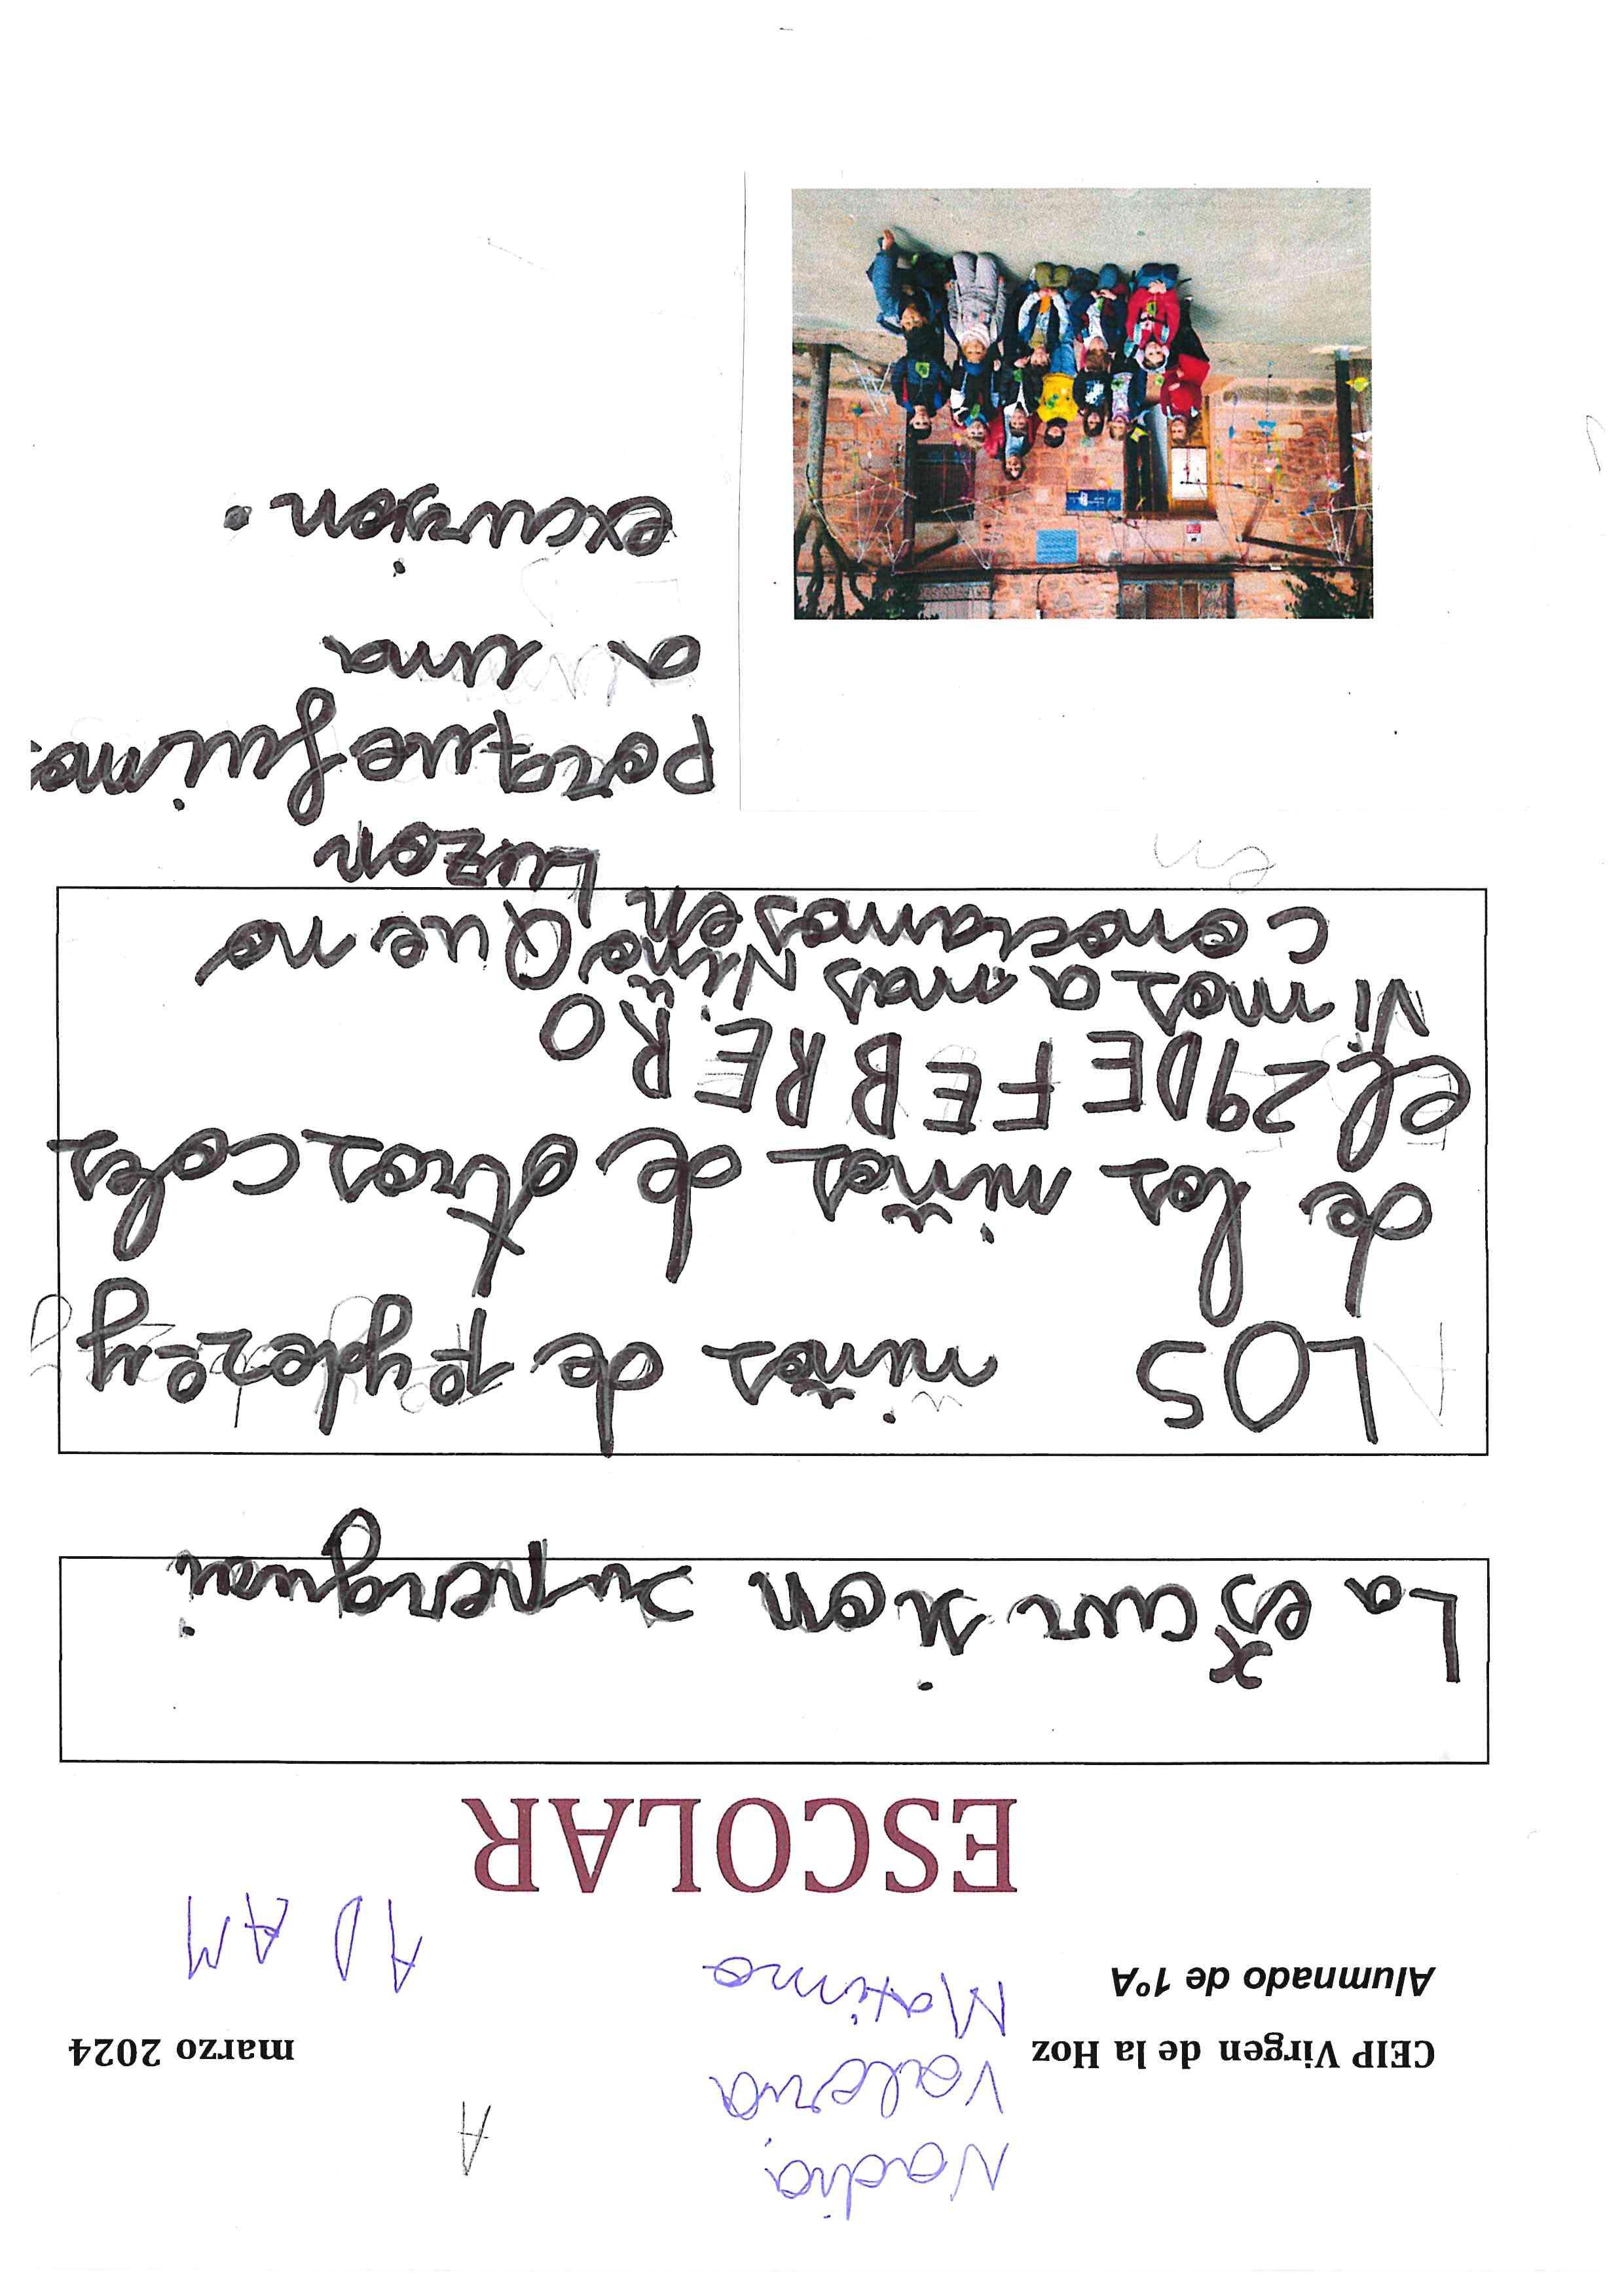 Nadia,
A
Valeria
CEIP Virgen de la Hoz
marzo 2024
Maximo
Alumnado de 1ºA
ADAM
ESCOLAR
La escursion superguai
x
LOS niños de 1º y de 2º y
de los niños de otros coles
el 29 DE FEBRERO
Vimos a mas Niño Que no
conociamos en Luzon
porque fuimos
a una
excursion.
en